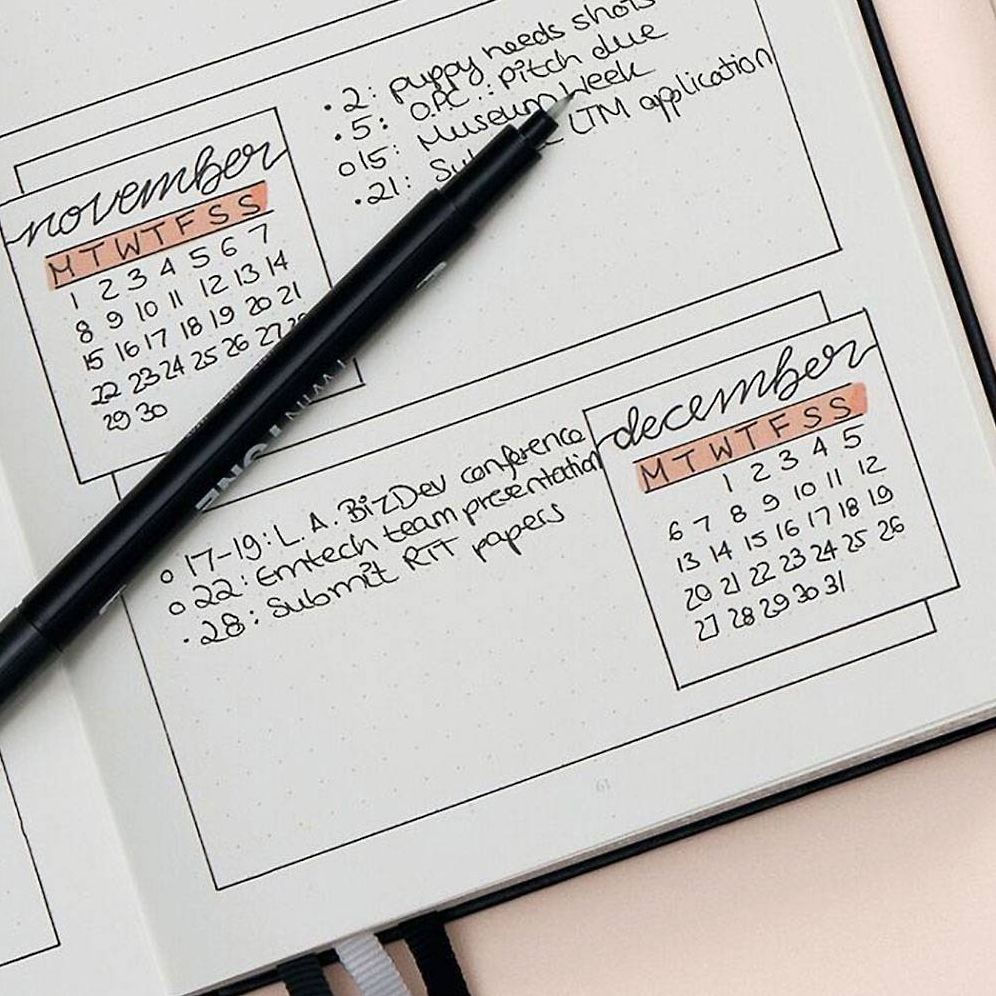 • 2: puppy needs shots
• 5: O.P.C.: pitch due
o 15: Museum Week
• 21: LTM application
november
M T W T F S S
1 2 3 4 5 6 7
8 9 10 11 12 13 14
15 16 17 18 19 20 21
22 23 24 25 26 27 28
29 30
december
M T W T F S S
1 2 3 4 5
6 7 8 9 10 11 12
13 14 15 16 17 18 19
20 21 22 23 24 25 26
27 28 29 30 31
o 17-19: L.A. BizDev conference
o 22: Emtech team presentation
• 28: Submit RTT papers
TWIN TONE
61